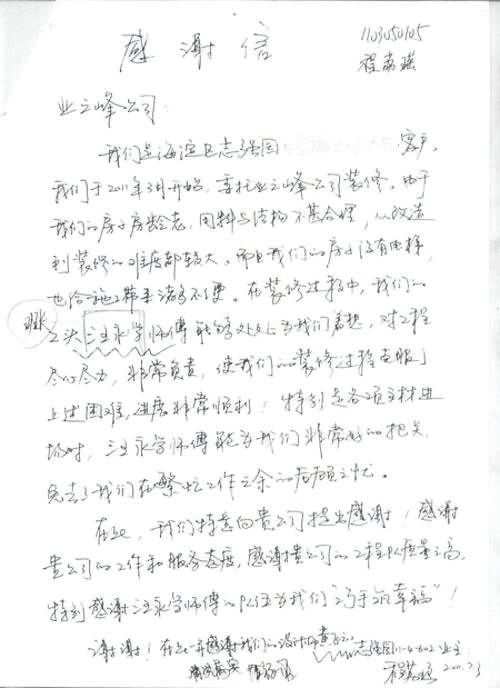 感谢信
1103050105
业之峰公司：
我们是海淀区志强园 客户。
我们于2011年3月开始，委托业之峰公司装修。由于
我们的房子房龄老，用料与结构不甚合理，从改造
到装修的难度都较大。而且我们的房子没有电梯，
也给施工带来诸多不便。在装修过程中，我们的
工头汪永学师傅能够处处为我们着想，对工程
尽心尽力，非常负责，使我们的装修过程克服了
上述困难，进展非常顺利！特别是各项主材进
场时，汪永学师傅能为我们非常好的把关，
免去了我们在繁忙工作之余的后顾之忧。
在此，我们特意向贵公司提出感谢！感谢
贵公司的工作和服务态度，感谢贵公司的工程队质量之高，
特别感谢汪永学师傅的队伍为我们“巧手筑幸福”！
谢谢！在此一并感谢我们的设计师
志强园11-4-602业主：
2011.7.3